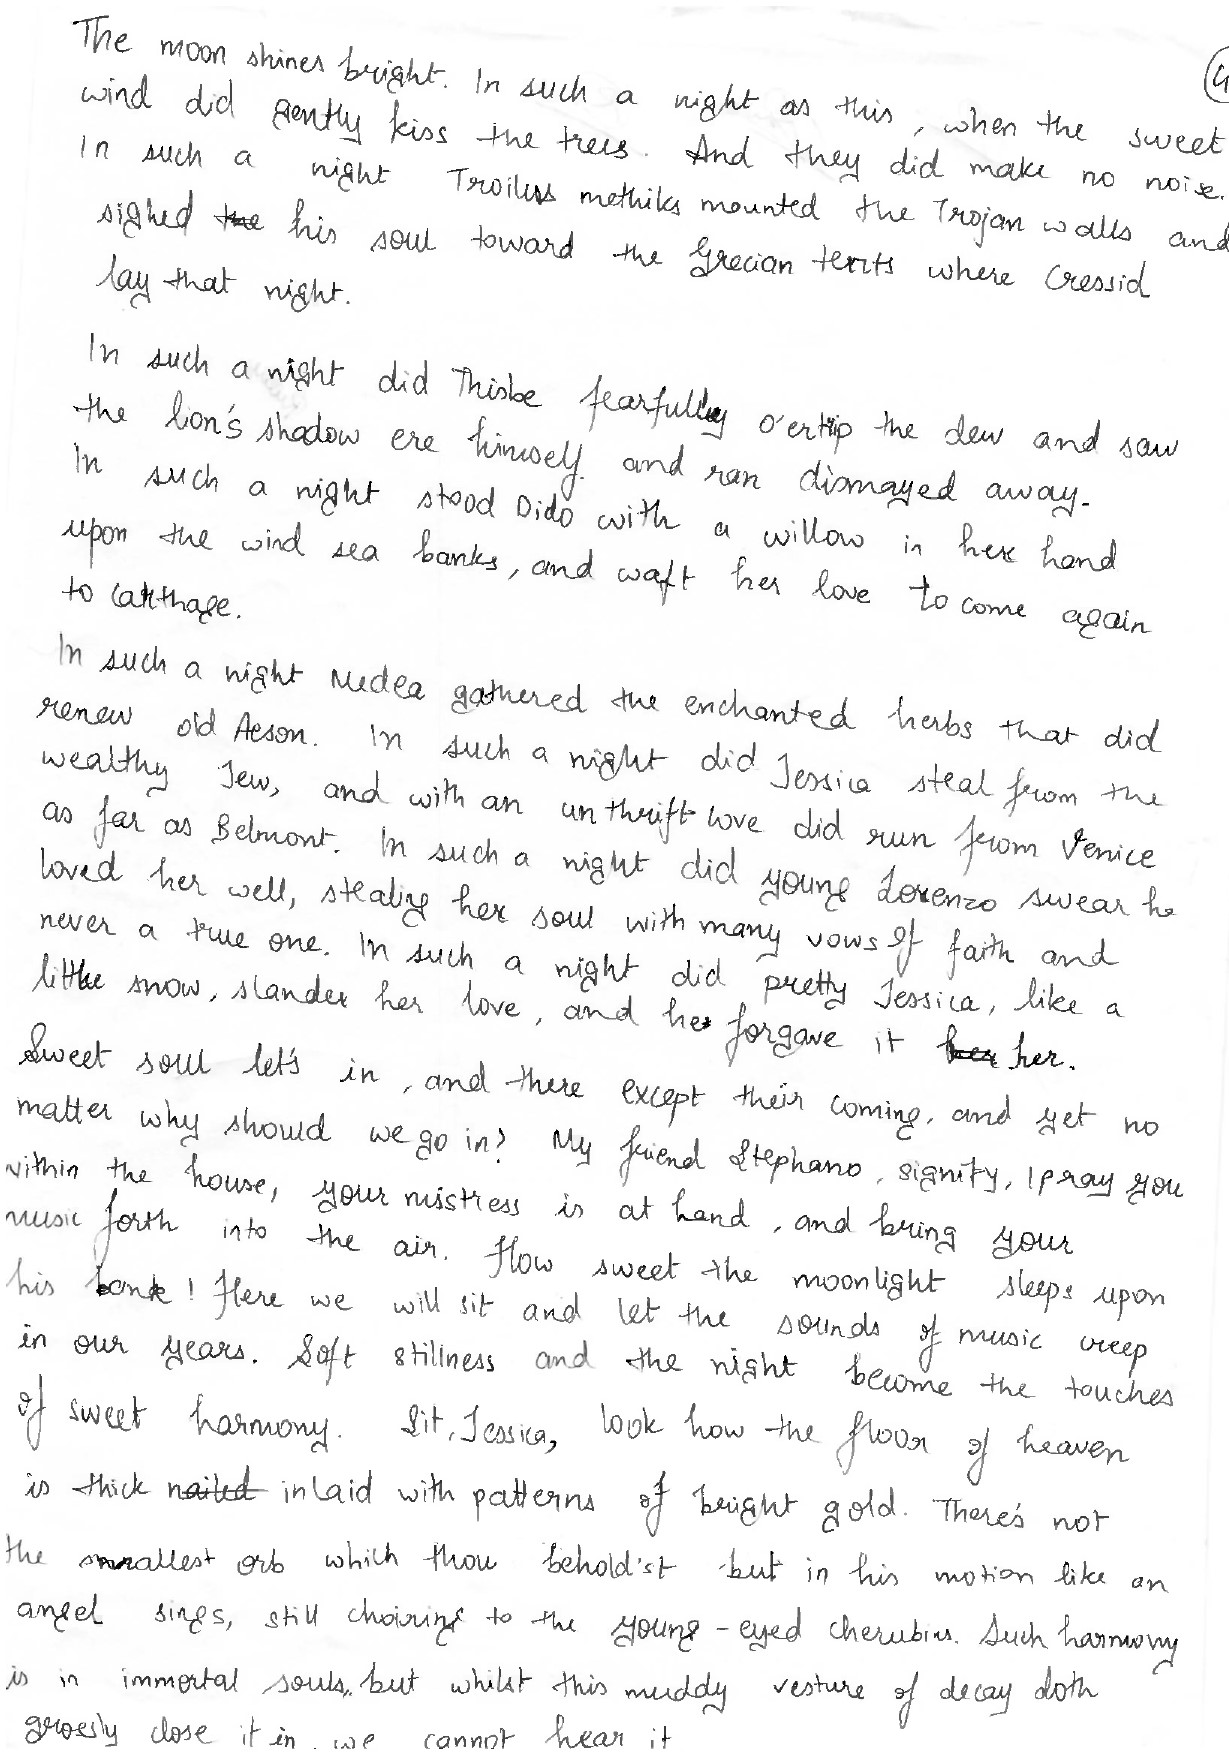 The moon shines bright. In such a night as this, when the sweet
wind did gently kiss the trees. And they did make no noise.
In such a night Troiluss methiks mounted the Trojan walls and
sighed the his soul toward the Grecian tents where Cressid
lay that night.
In such a night did Thisbe fearfully o'ertrip the dew and saw
the lion's shadow ere himself and ran dismayed away.
In such a night stood Dido with a willow in her hand
upon the wind sea banks, and waft her love to come again
to Carthage.
In such a night Medea gathered the enchanted herbs that did
renew old Aeson. In such a night did Jessica steal from the
wealthy Jew, and with an unthrift love did run from Venice
as far as Belmont. In such a night did young Lorenzo swear he
loved her well, stealing her soul with many vows of faith and
never a true one. In such a night did pretty Jessica, like a
little snow, slander her love, and he forgave it her her.
Sweet soul let's in, and there except their coming, and yet no
matter why should we go in? My friend Stephano, signify, I pray you
within the house, your mistress is at hand, and bring your
music forth into the air. How sweet the moonlight sleeps upon
his bank! Here we will sit and let the sounds of music creep
in our years. Soft stillness and the night become the touches
of sweet harmony. Sit, Jessica, look how the floor of heaven
is thick nailed inlaid with patterns of bright gold. There's not
the smallest orb which thou behold'st but in his motion like an
angel sings, still choiring to the young-eyed cherubins. Such harmony
is in immortal souls, but whilst this muddy vesture of decay doth
grossly close it in, we cannot hear it